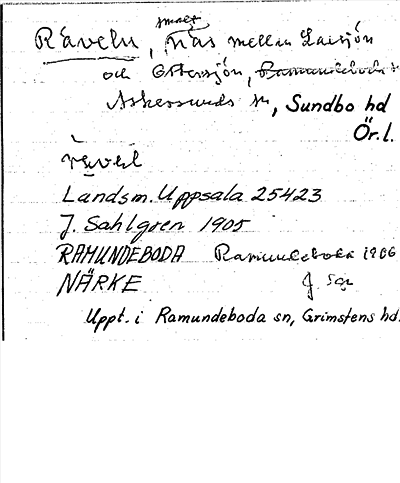 Räveln, smalt näs mellan Laxsjön
och Ottersjön, Ramundeboda sn
Askersunds sn, Sundbo hd
Ör.l.
rävel
Landsm. Uppsala 25423
J. Sahlgren 1905
RAMUNDEBODA Ramundeboda 1906
NÄRKE J. Sgr
Uppt. i Ramundeboda sn, Grimstens hd.